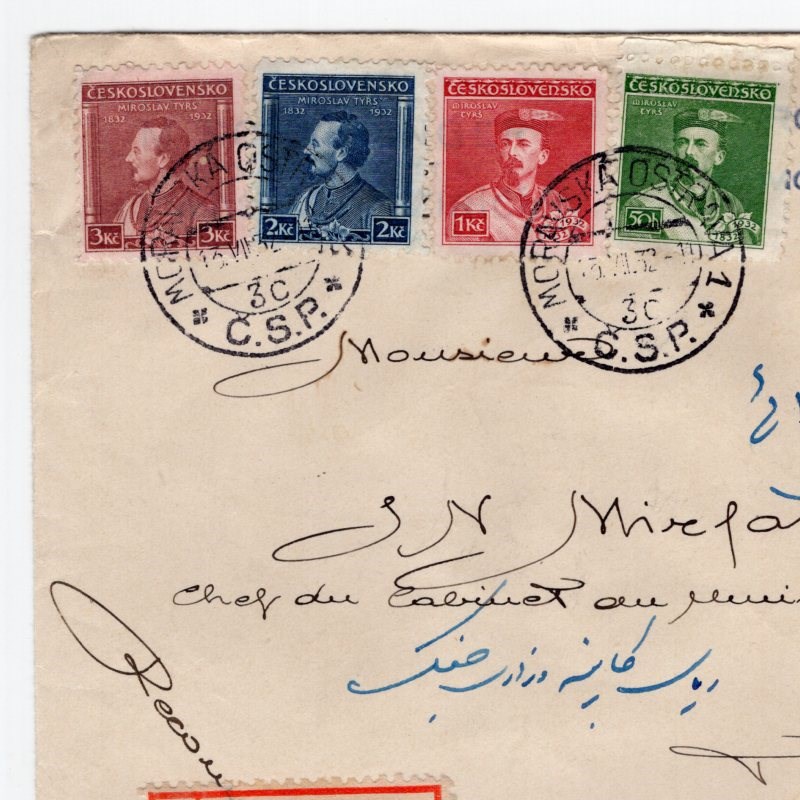 ČESKOSLOVENSKO
MIROSLAV TYRŠ
1832 1932
3Kč 3Kč
ČESKOSLOVENSKO
MIROSLAV TYRŠ
1832 1932
2Kč 2Kč
ČESKOSLOVENSKO
MIROSLAV
TYRŠ
1932
1Kč
1832
ČESKOSLOVENSKO
MIROSLAV
TYRŠ
1932
50h
1832
MORAVSKÁ OSTRAVA
VII.32
3c
* Č.S.P. *
MORAVSKÁ OSTRAVA 1
VII.32-10
3c
* Č.S.P. *
Monsieur
J N Mirfa
Chef du Cabinet au Mini
کابینه وزارت جنگ
Recom